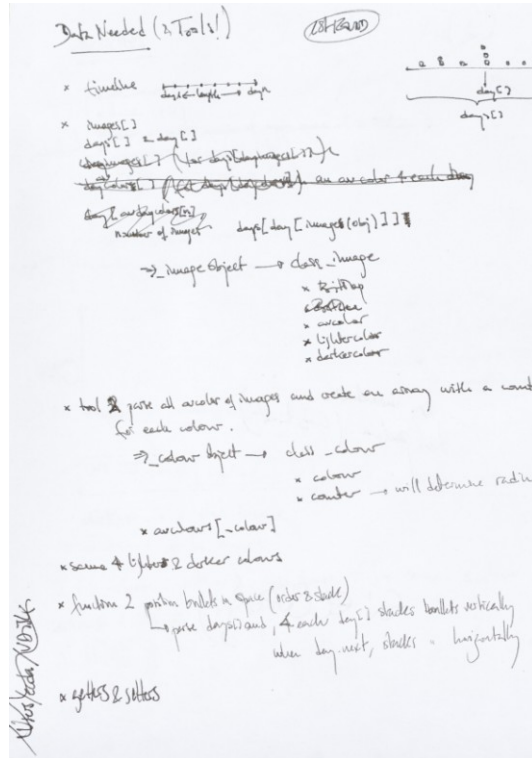 Data Needed (& Tools!)
1st ROUND
* timeline
days ← length → days
day[]
days[]
* images[]
days[] & day[]
number of images
days[day[images(obj)]]
⇒ _image object → class _image
* BitMap
* avcolor
* lightercolor
* darkercolor
* tool 2 parse all avcolor of images and create an array with a count
for each colour.
⇒ _colour object → class _colour
* colour
* counter → will determine radius
* avcolours[_colour]
* same 4 lighter & darker colours
* function 2 position bullets in space (order & stack)
↳ parse days[] and, 4 each day[] stacks bullets vertically
when day.next, stacks " horizontally
* getters & setters